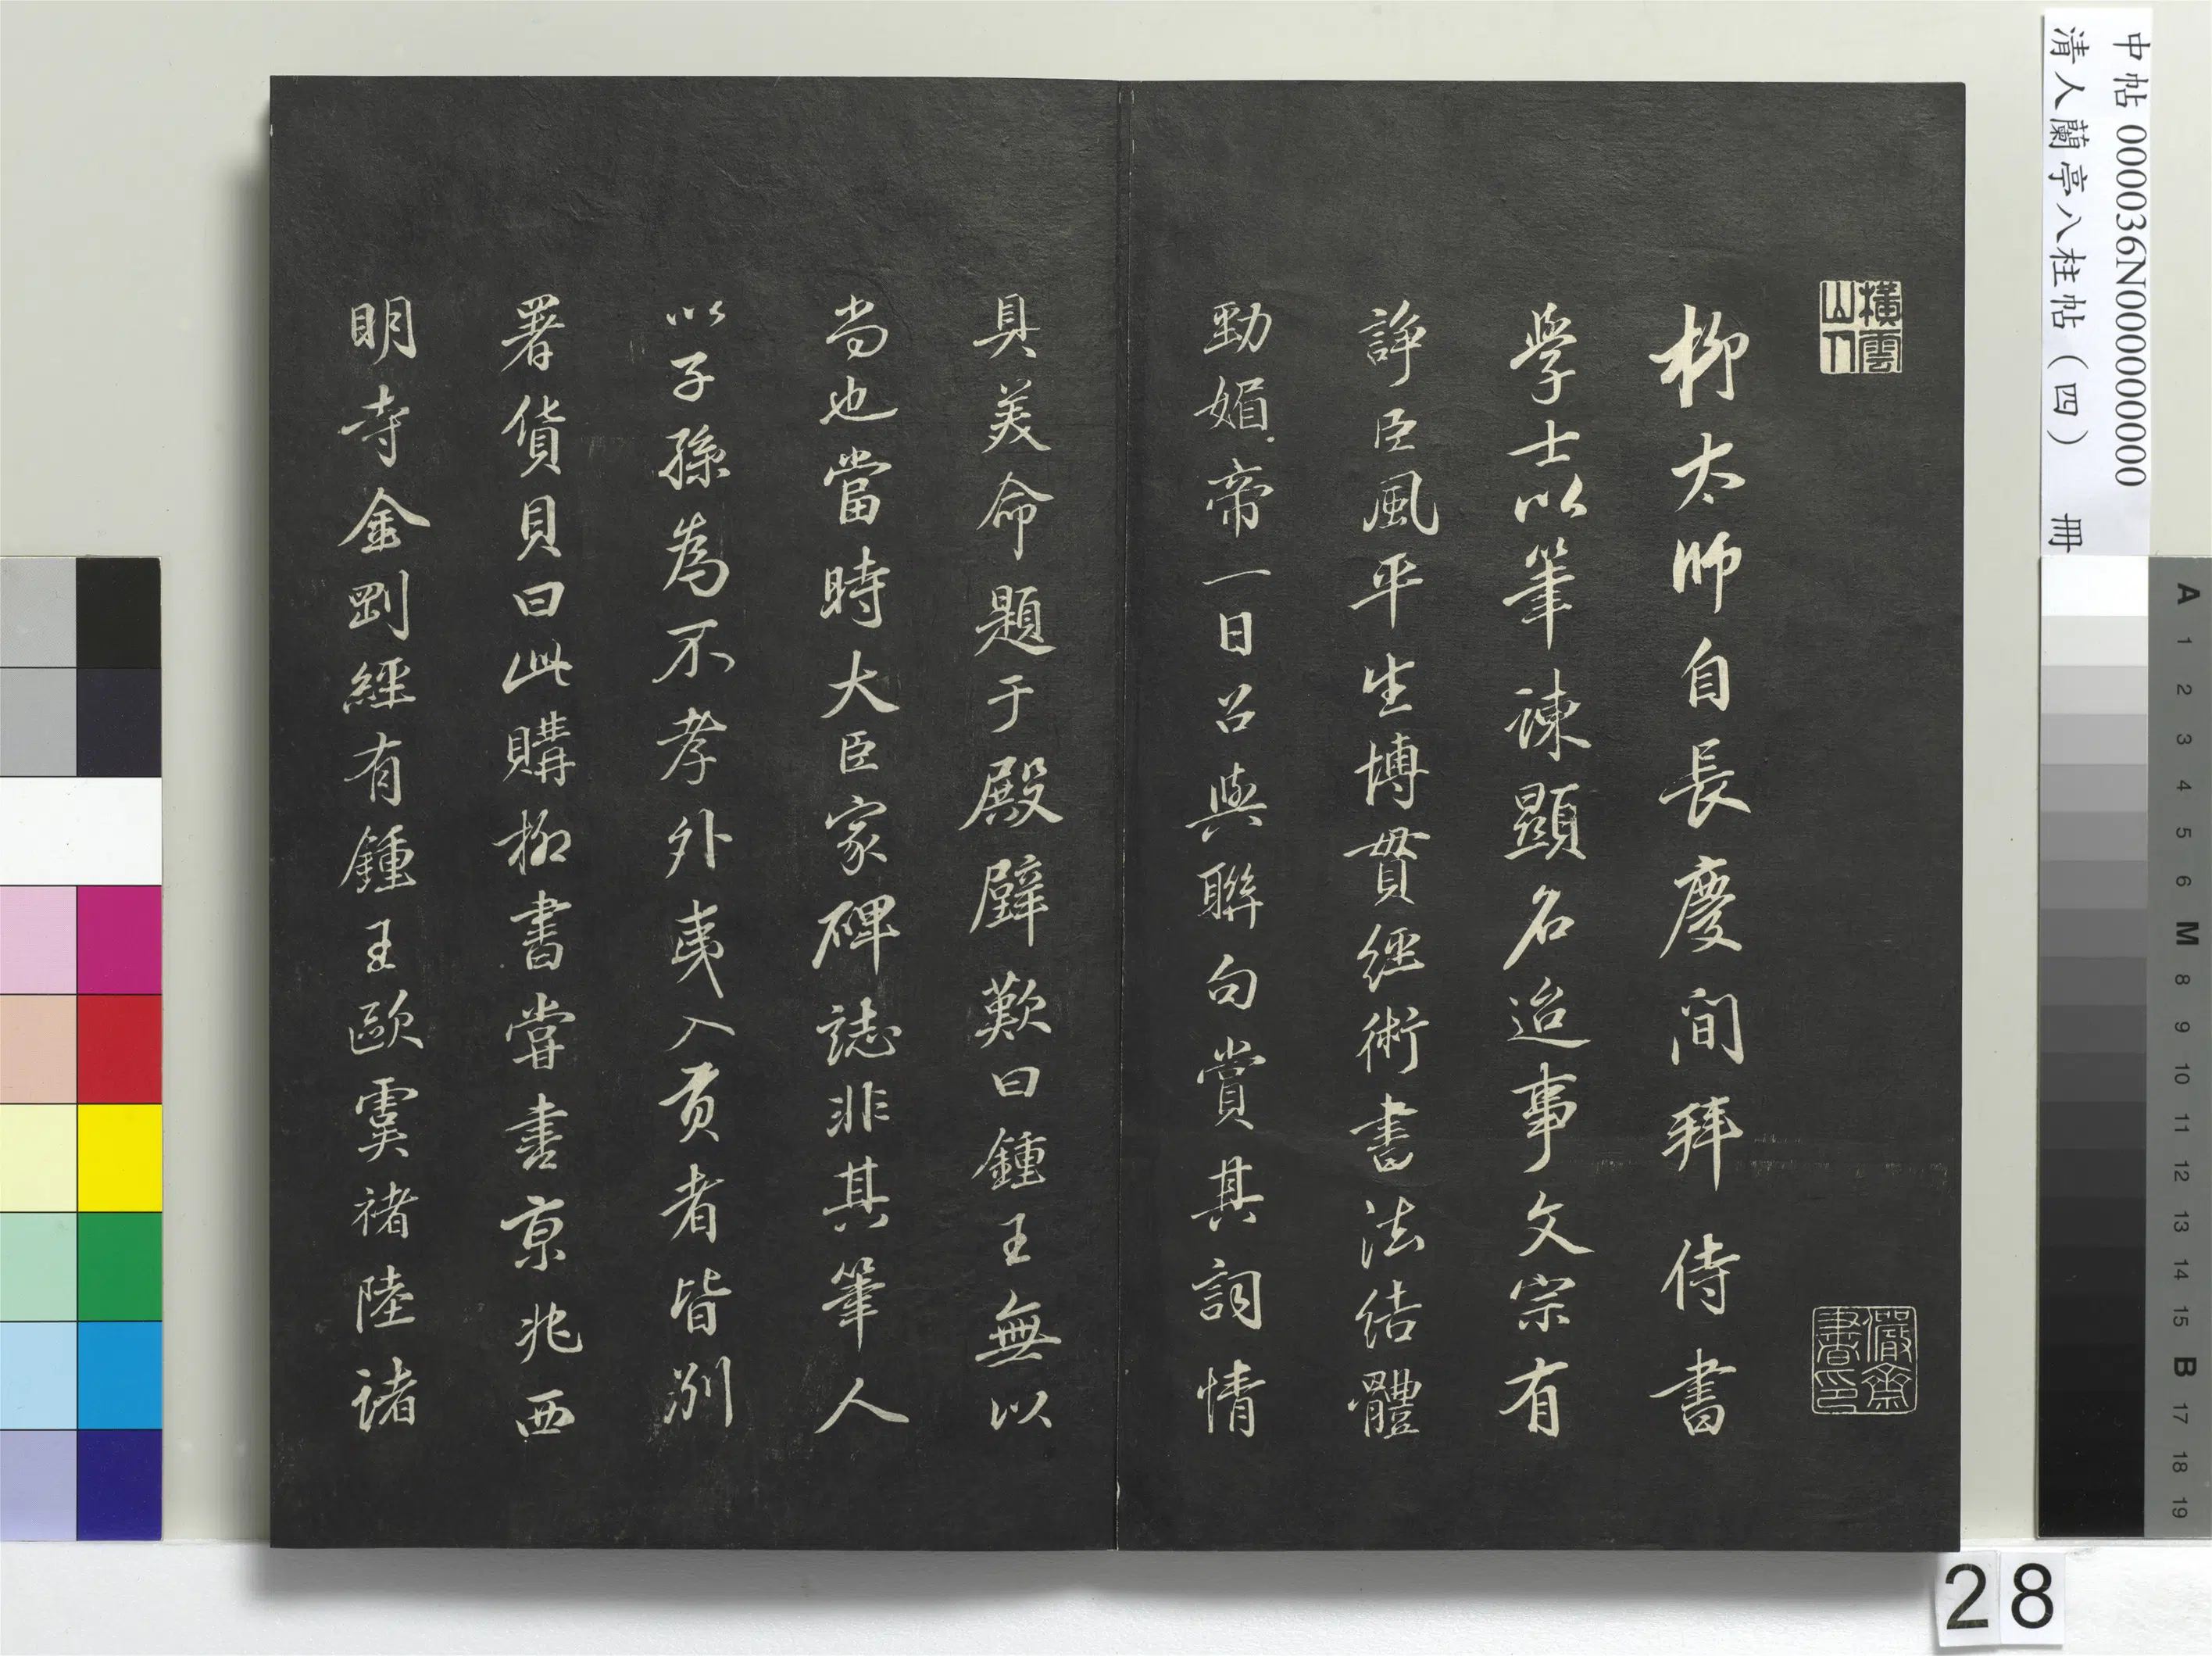 中帖 000036N000000000
清人蘭亭八柱帖（四） 冊
橫雲山下
儼齋書印
柳太師自長慶間拜侍書
學士以筆諫顯名迨事文宗有
諍臣風平生博貫經術書法結體
勁媚帝一日召與聯句賞其詞情
具美命題于殿壁歎曰鍾王無以
尚也當時大臣家碑誌非其筆人
以子孫為不孝外夷入貢者皆別
署貨貝曰此購柳書嘗書京兆西
明寺金剛經有鍾王歐虞褚陸諸
A 1 2 3 4 5 6 M 8 9 10 11 12 13 14 15 B 17 18 19
28